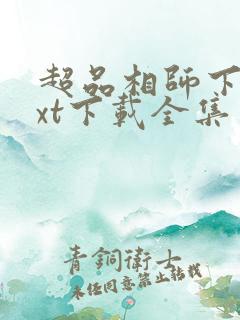 超品相師下
xt下載全集
青銅衛士
未经同意禁止转载